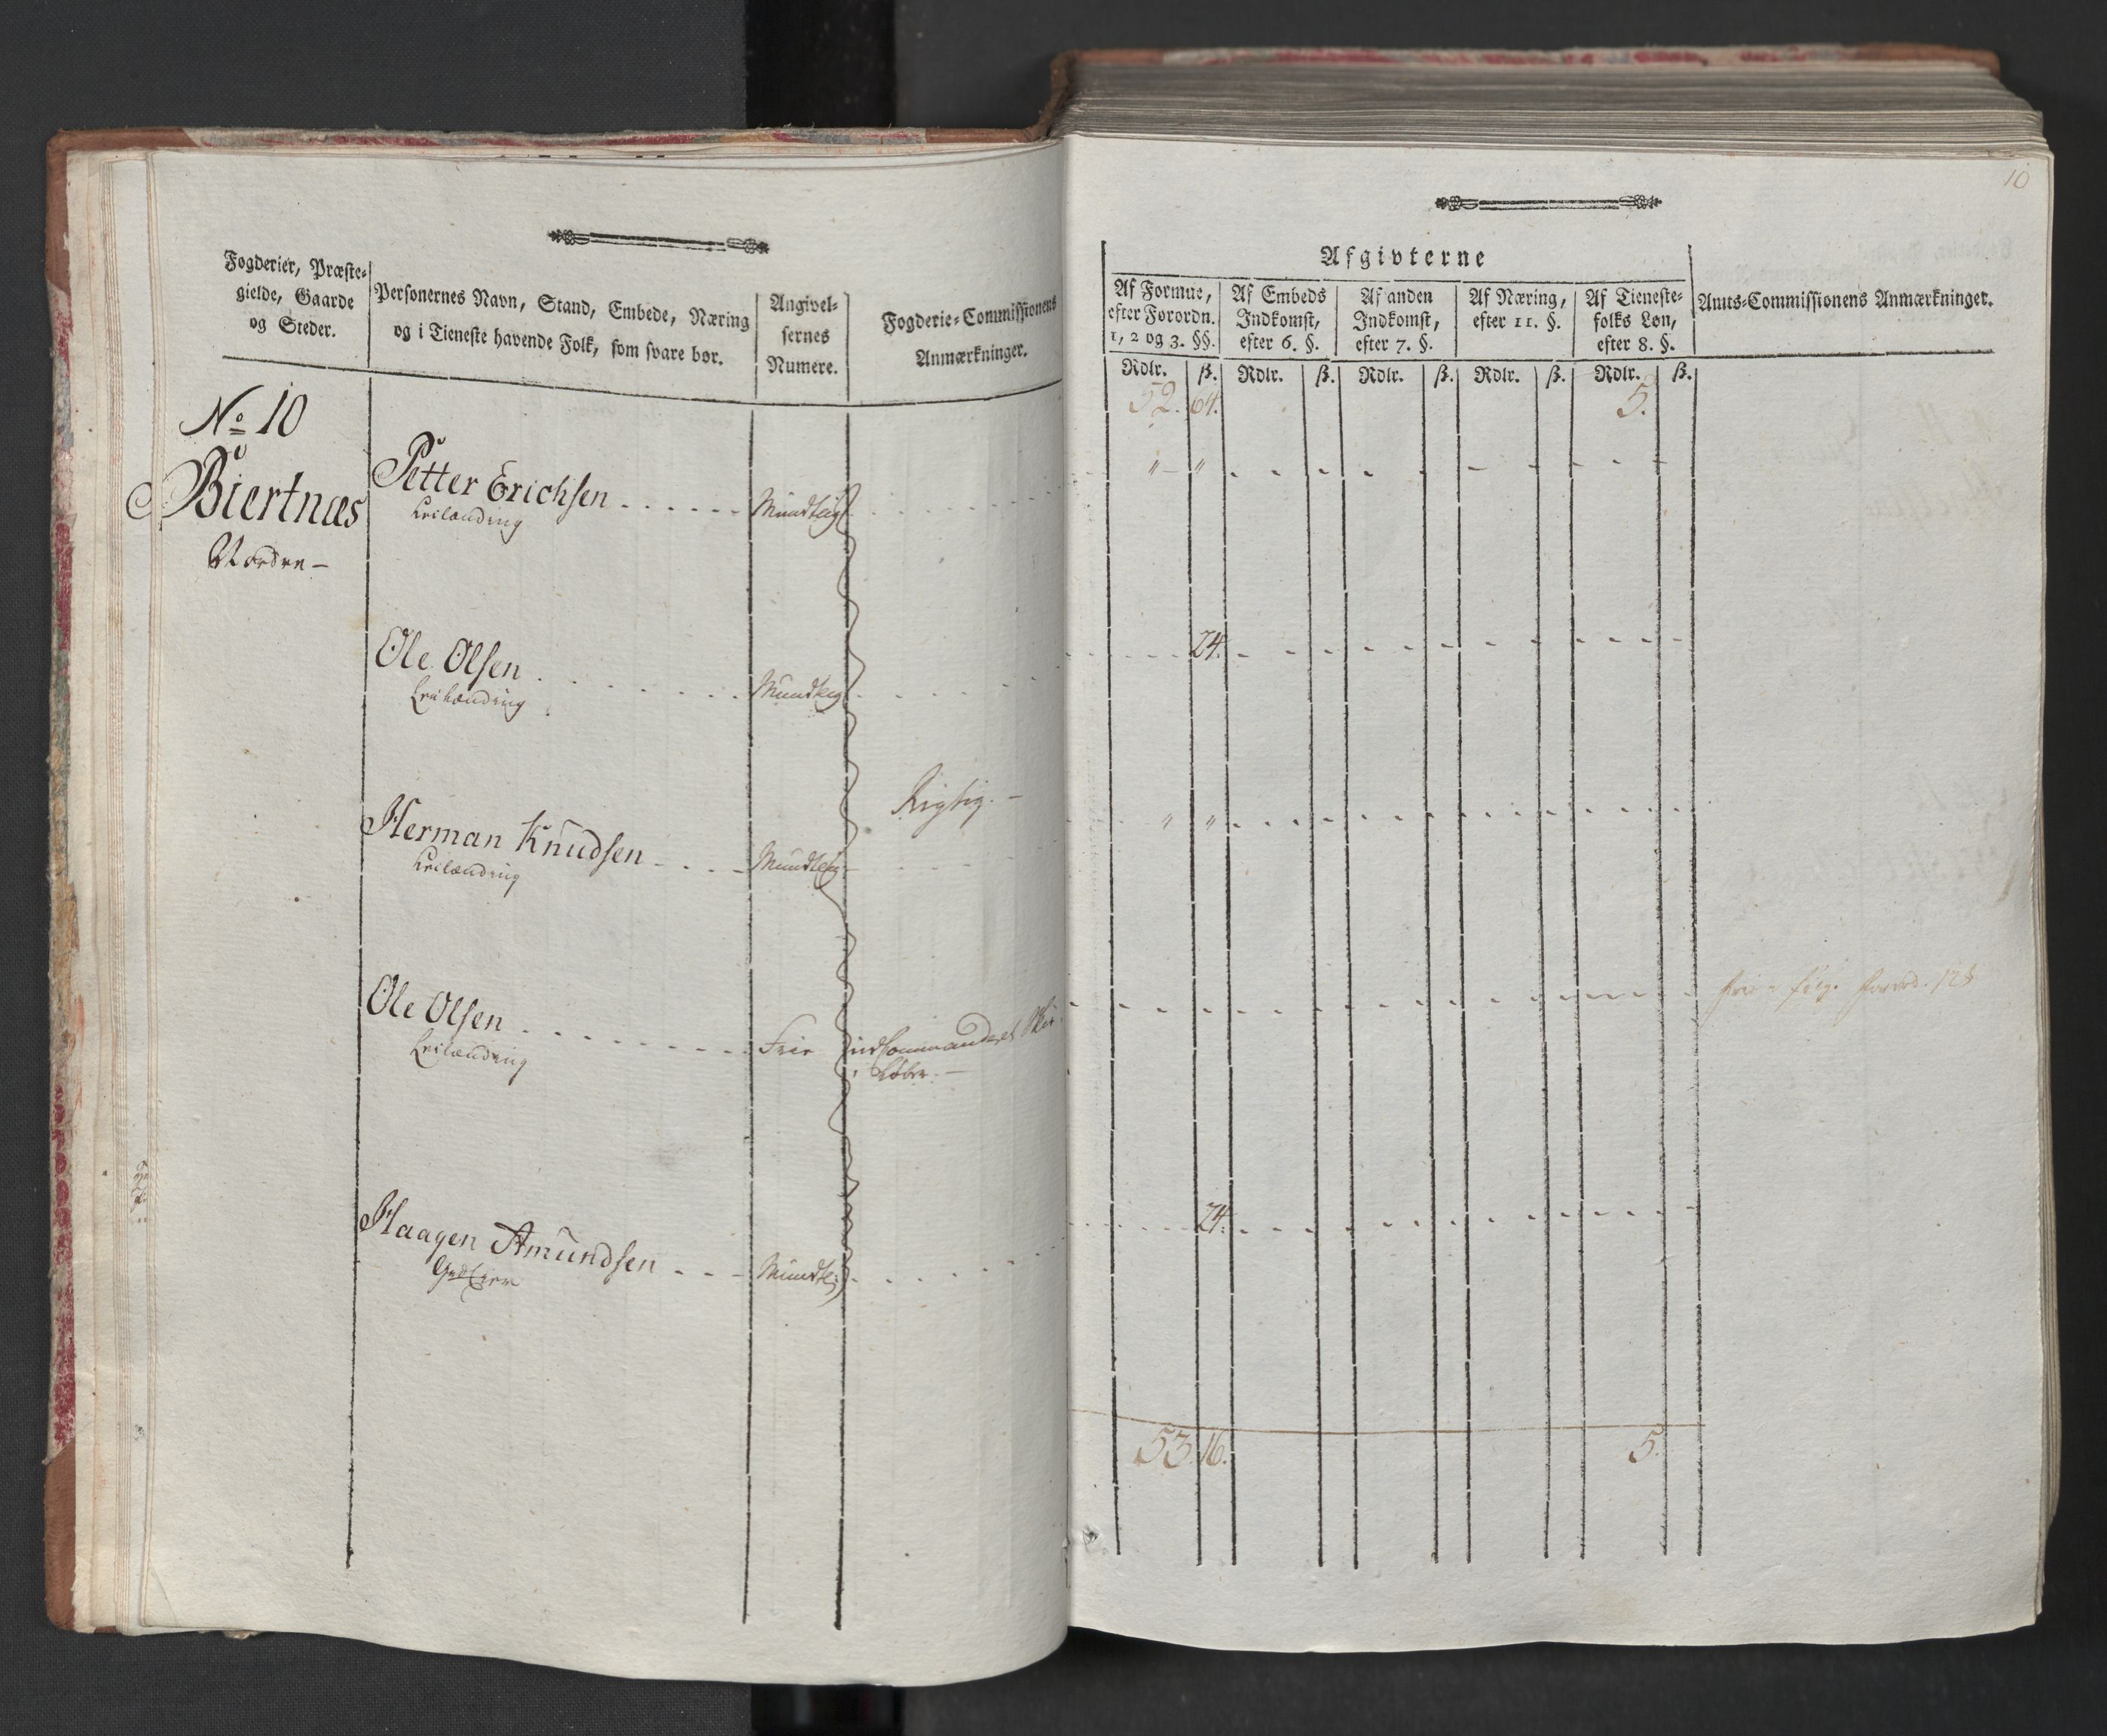 Fogderier, Præste-
gielde, Gaarde
og Steder.
Personernes Navn, Stand, Embede, Næring
og i Tieneste havende Folk, som svare bør.
Angivel-
sernes
Numere.
Fogderie-Commissionens
Anmærkninger.
No 10
Biertnæs
Nordre –
Petter Erichsen . . . . . . Mundtlig
Leilænding
Ole Olsen . . . . . . Mundtlig
Leilænding
Rigtig. –
Herman Knudsen . . . . Mundtlig
Leilænding
Ole Olsen . . . . . . Frie indCommanderet Ski-
Leilænding
løber. –
Haagen Amundsen . . . Mundtl:
10
Afgivterne
Af Formue,
efter Forordn.
1, 2 og 3. §§.
Af Embeds
Indkomst,
efter 6. §.
Af anden
Indkomst,
efter 7. §.
Af Næring,
efter 11. §.
Af Tieneste-
folks Løn,
efter 8. §.
Amts-Commissionens Anmærkninger.
Rdlr. ß. Rdlr. ß. Rdlr. ß. Rdlr. ß. Rdlr. ß.
52. 64. 5.
" "
24.
" "
Forord. 12 §
24.
53. 16. 5.